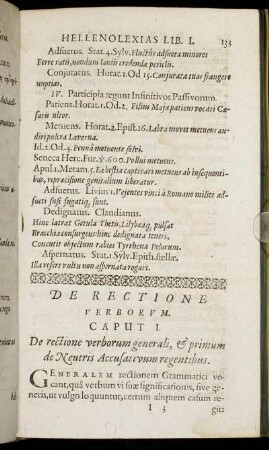 HELLENOLEXIAS LIB. I. 133
Adsuetus. Stat. 4. Sylv. Fluctus adsueta minores
Ferre ratis, nondum Ioniis credenda periclis.
Conjuratus. Horat. 1. Od 15. Conjurata tuas frangere
nuptias.
IV. Participia regunt Infinitivos Passivorum.
Patiens. Horat. 1. Od. 2, Filius Maja patiens vocari Cæ-
saris ultor.
Metuens. Horat. 2. Epist. 16. Labra movet metuens au-
diri pulcra Laverna.
Id. 2. Od. 4. Pennâ metuente solvi.
Seneca Herc. Fur. 600. Pollui metuens.
Apul. 1. Metam. 5. Ea bestia captivari metuens ab insequenti-
bus, repræcisione genitalium liberatur.
Adsuetus. Livius 1. Vejentes vinci à Romano milite ad-
sueti fusi fugatiq, sunt.
Dedignatus. Claudianus.
Hinc latrat Getula Thetis, Lilybæaq, pulsat
Bracchia consurgens: hinc dedignata teneri,
Concutit objectum rabies Tyrrhena Pelorum.
Aspernatus. Stat. 1 Sylv. Epith. stellæ.
Illa refert vultu non aspernata rogari.
DE RECTIONE
VERBORVM.
CAPUT I.
De rectione verborum generali, & primùm
de Neutris Accusativum regentibus.
GENERALEM rectionem Grammatici vo-
cant, quâ verbum vi suæ significationis, sive ge-
neris, ut vulgo loquuntur, certum aliquem casum re-
I 3 git: